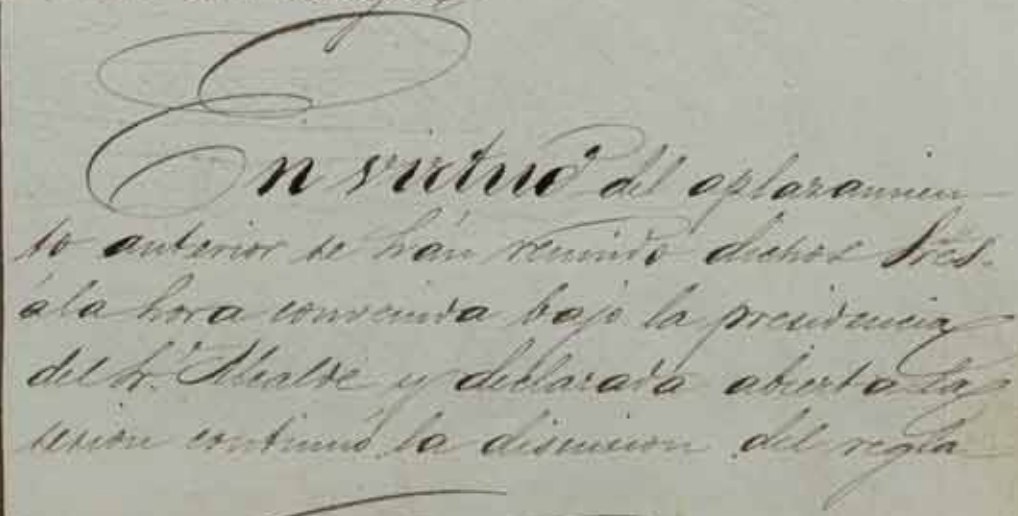 En virtud del aplazamien
to anterior se hán reunido dichos Sres.
á la hora convenida bajo la presidencia
del Sr. Alcalde y declarada abierta la
sesion continuó la discusion del regla